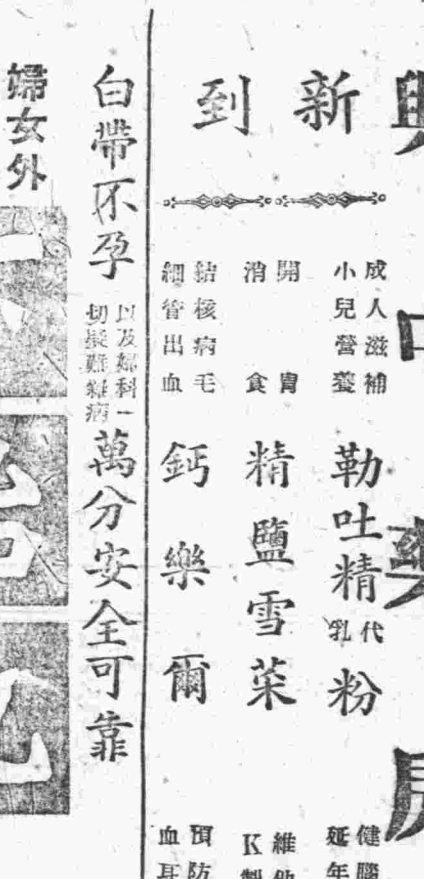 新到
成人滋補
小兒營養
勒吐精代乳粉
開胃
消食
精鹽雪菜
結核病毛
細管出血
鈣樂爾
健腦
延年
維他
K製
預防
血
白帶不孕
以及婦科一
切疑難雜病
萬分安全可靠
婦女外